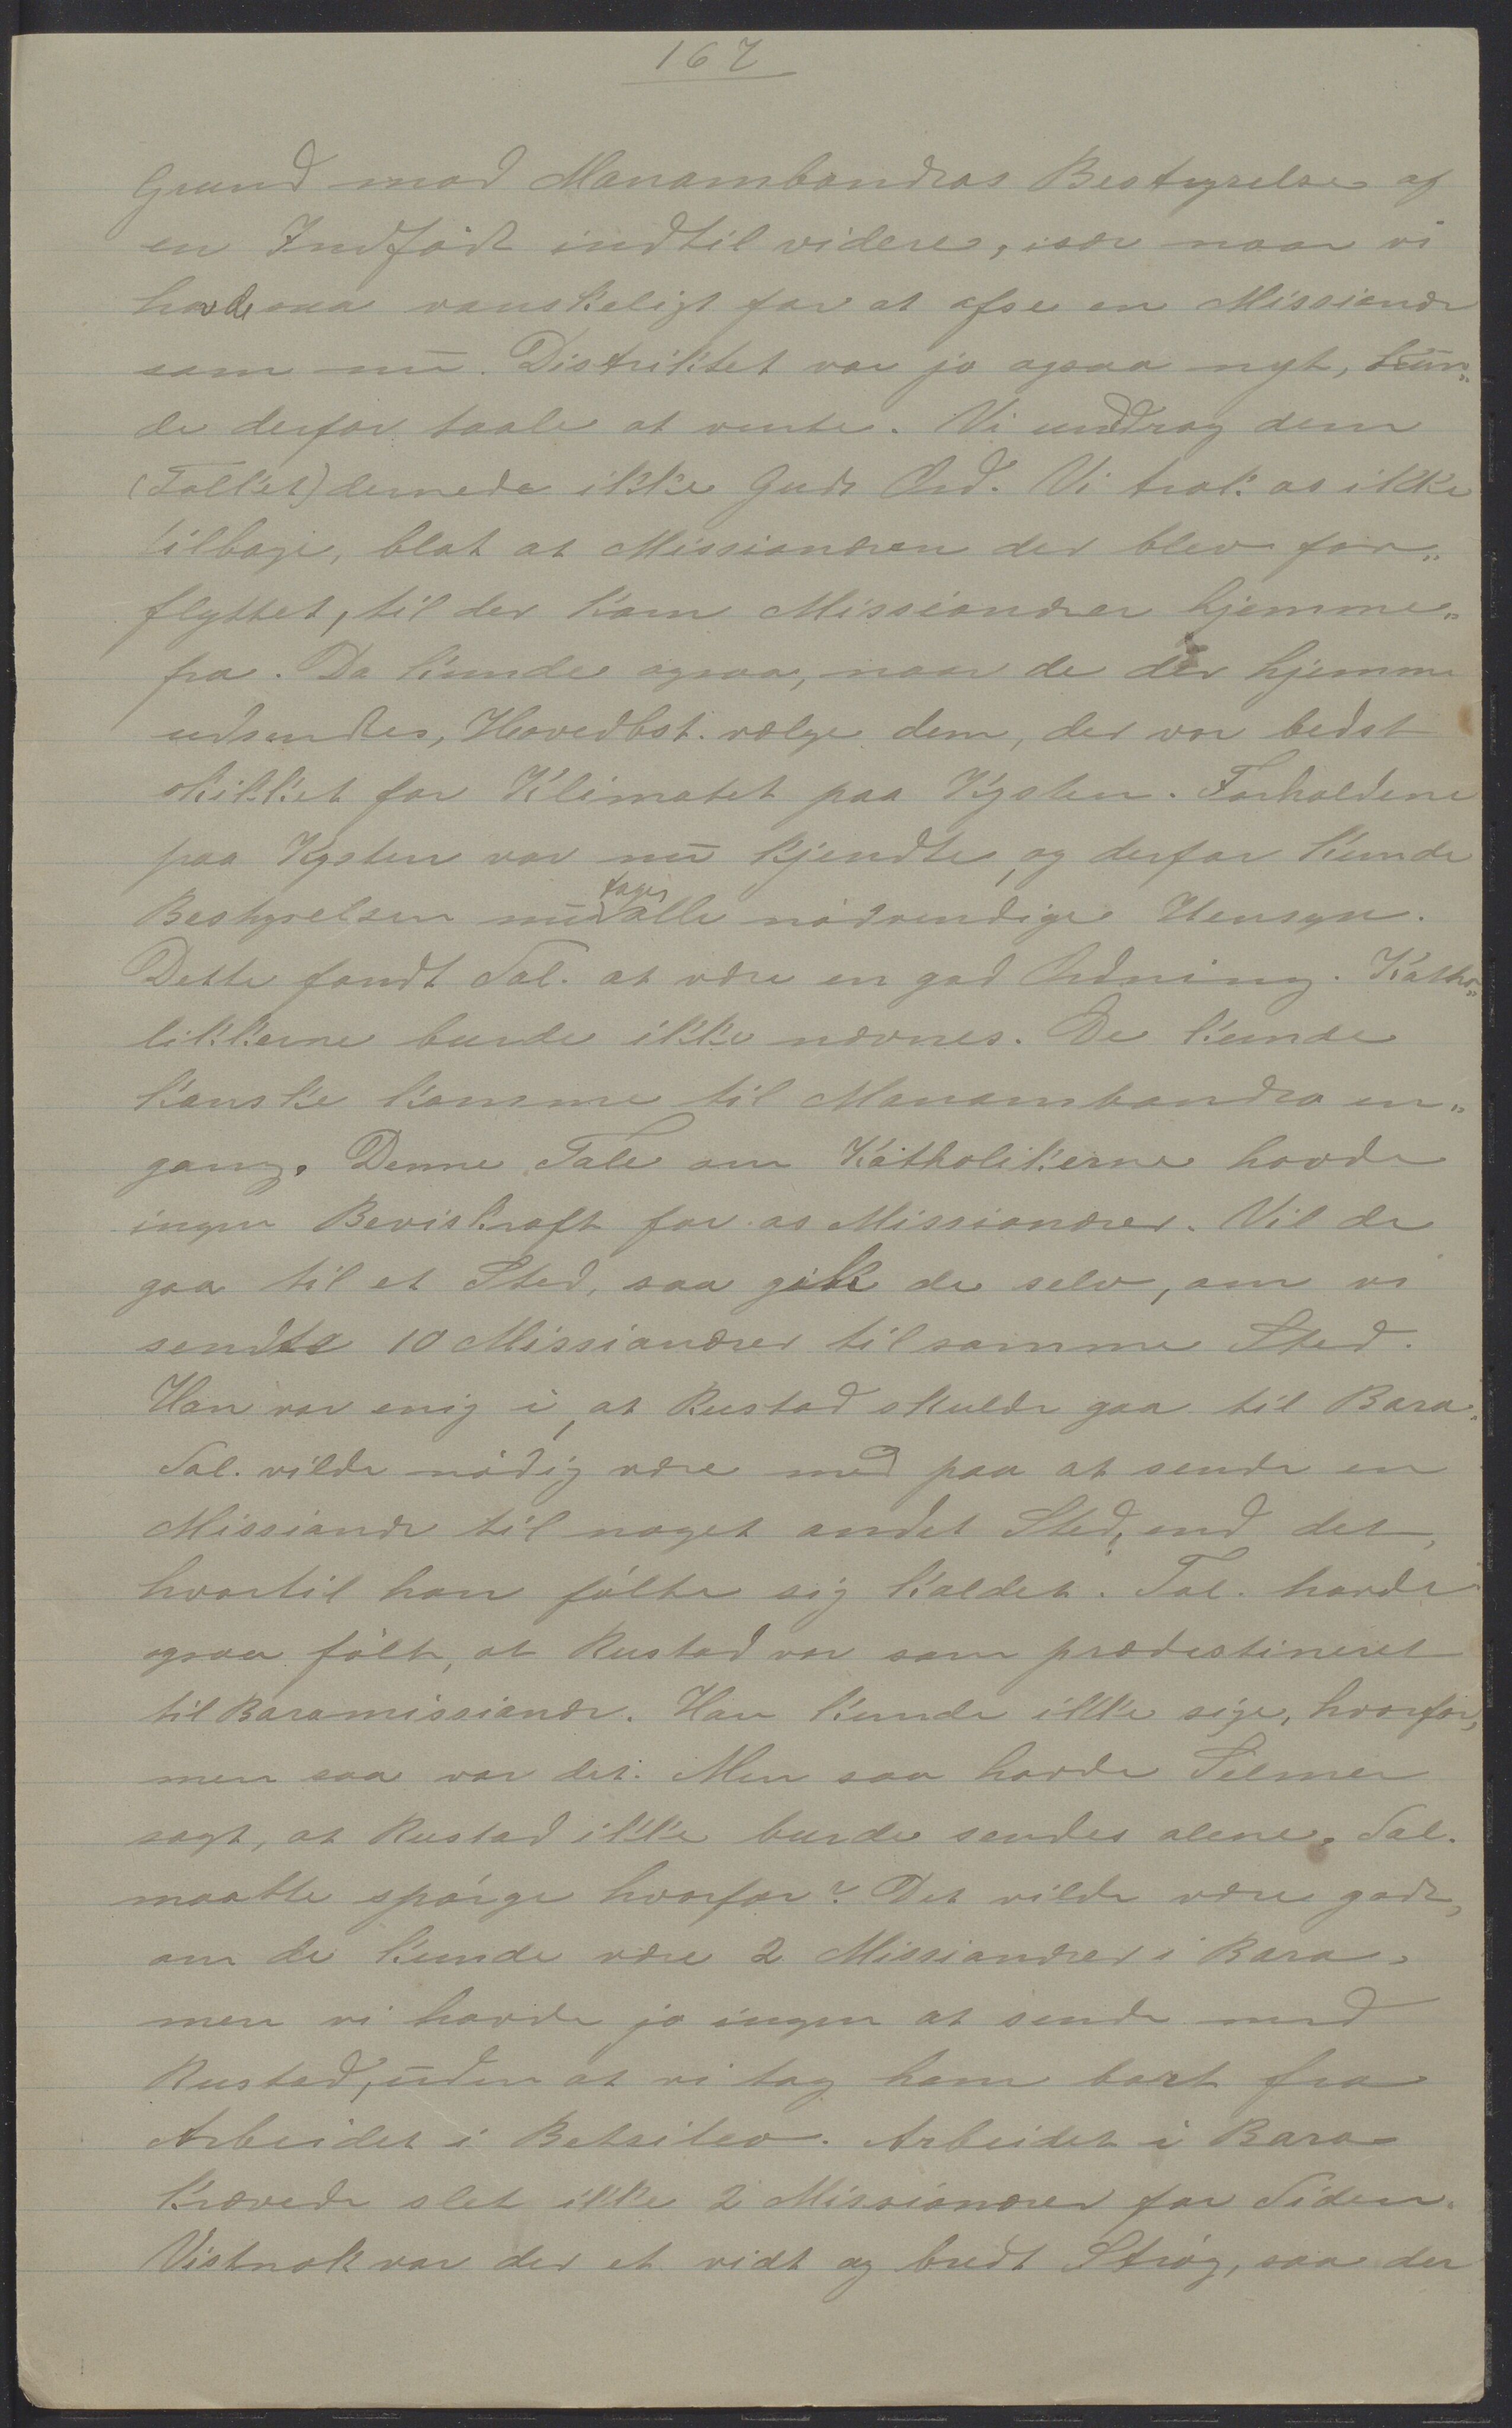 167
Grund mod Manambondros Bestyrelse af
en Indfødt indtil videre, især naar vi
havde saa vanskeligt for at afse en Missionær
som nu. Distriktet var jo ogsaa nyt, kun„
de derfor taale at vente. Vi unddrog dem
(Folket) dermede ikke Guds Ord. Vi trak os ikke
tilbage, blot at Missionæren der blev for„
flyttet, til der kom Missionærer hjemme„
fra. Da kunde ogsaa, naar de der hjemme
udsendtes, Hovedbst. vælge dem, der var bedst
skikket for Klimatet paa Kysten. Forholdene
paa Kysten var nu kjendte, og derfor kunde
Bestyrelsen nu tage alle nødvendige Hensyn.
Dette fandt Tal. at være en god Ordning. Katho„
likkerne burde ikke nævnes. De kunde
kanske komme til Manambondro en„
gang. Denne Tale om Katholikerne havde
ingen Beviskraft for os Missionærer. Vil de
gaa til et Sted, saa gik de selv, om vi
sendte 10 Missionærer til samme Sted.
Han var enig i, at Rustad skulde gaa til Bara.
Tal. vilde nødig være med paa at sende en
Missionær til noget andet Sted, end det,
hvortil han følte sig kaldet. Tal. havde
ogsaa følt, at Rustad var som prædestineret
til Baramissionær. Han kunde ikke sige, hvorfor,
men saa var det. Men saa havde Selmer
sagt, at Rustad ikke burde sendes alene. Tal.
maatte spørge hvorfor? Det vilde være godt,
om de kunde være 2 Missionærer i Bara,
men vi havde jo ingen at sende med
Rustad, uden at vi tog ham bort fra
Arbeidet i Betsileo. Arbeidet i Bara
krævede slet ikke 2 Missionærer for Tiden.
Vistnok var der et vidt og bredt Strøg, saa der